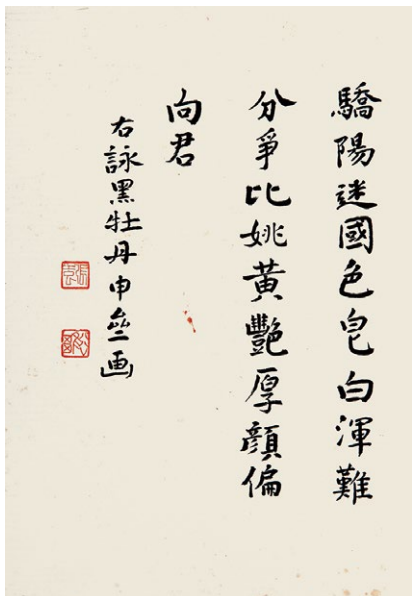 驕陽迷國色皂白渾難
分爭比姚黃艷厚顏偏
向君
右詠黑牡丹申壘画